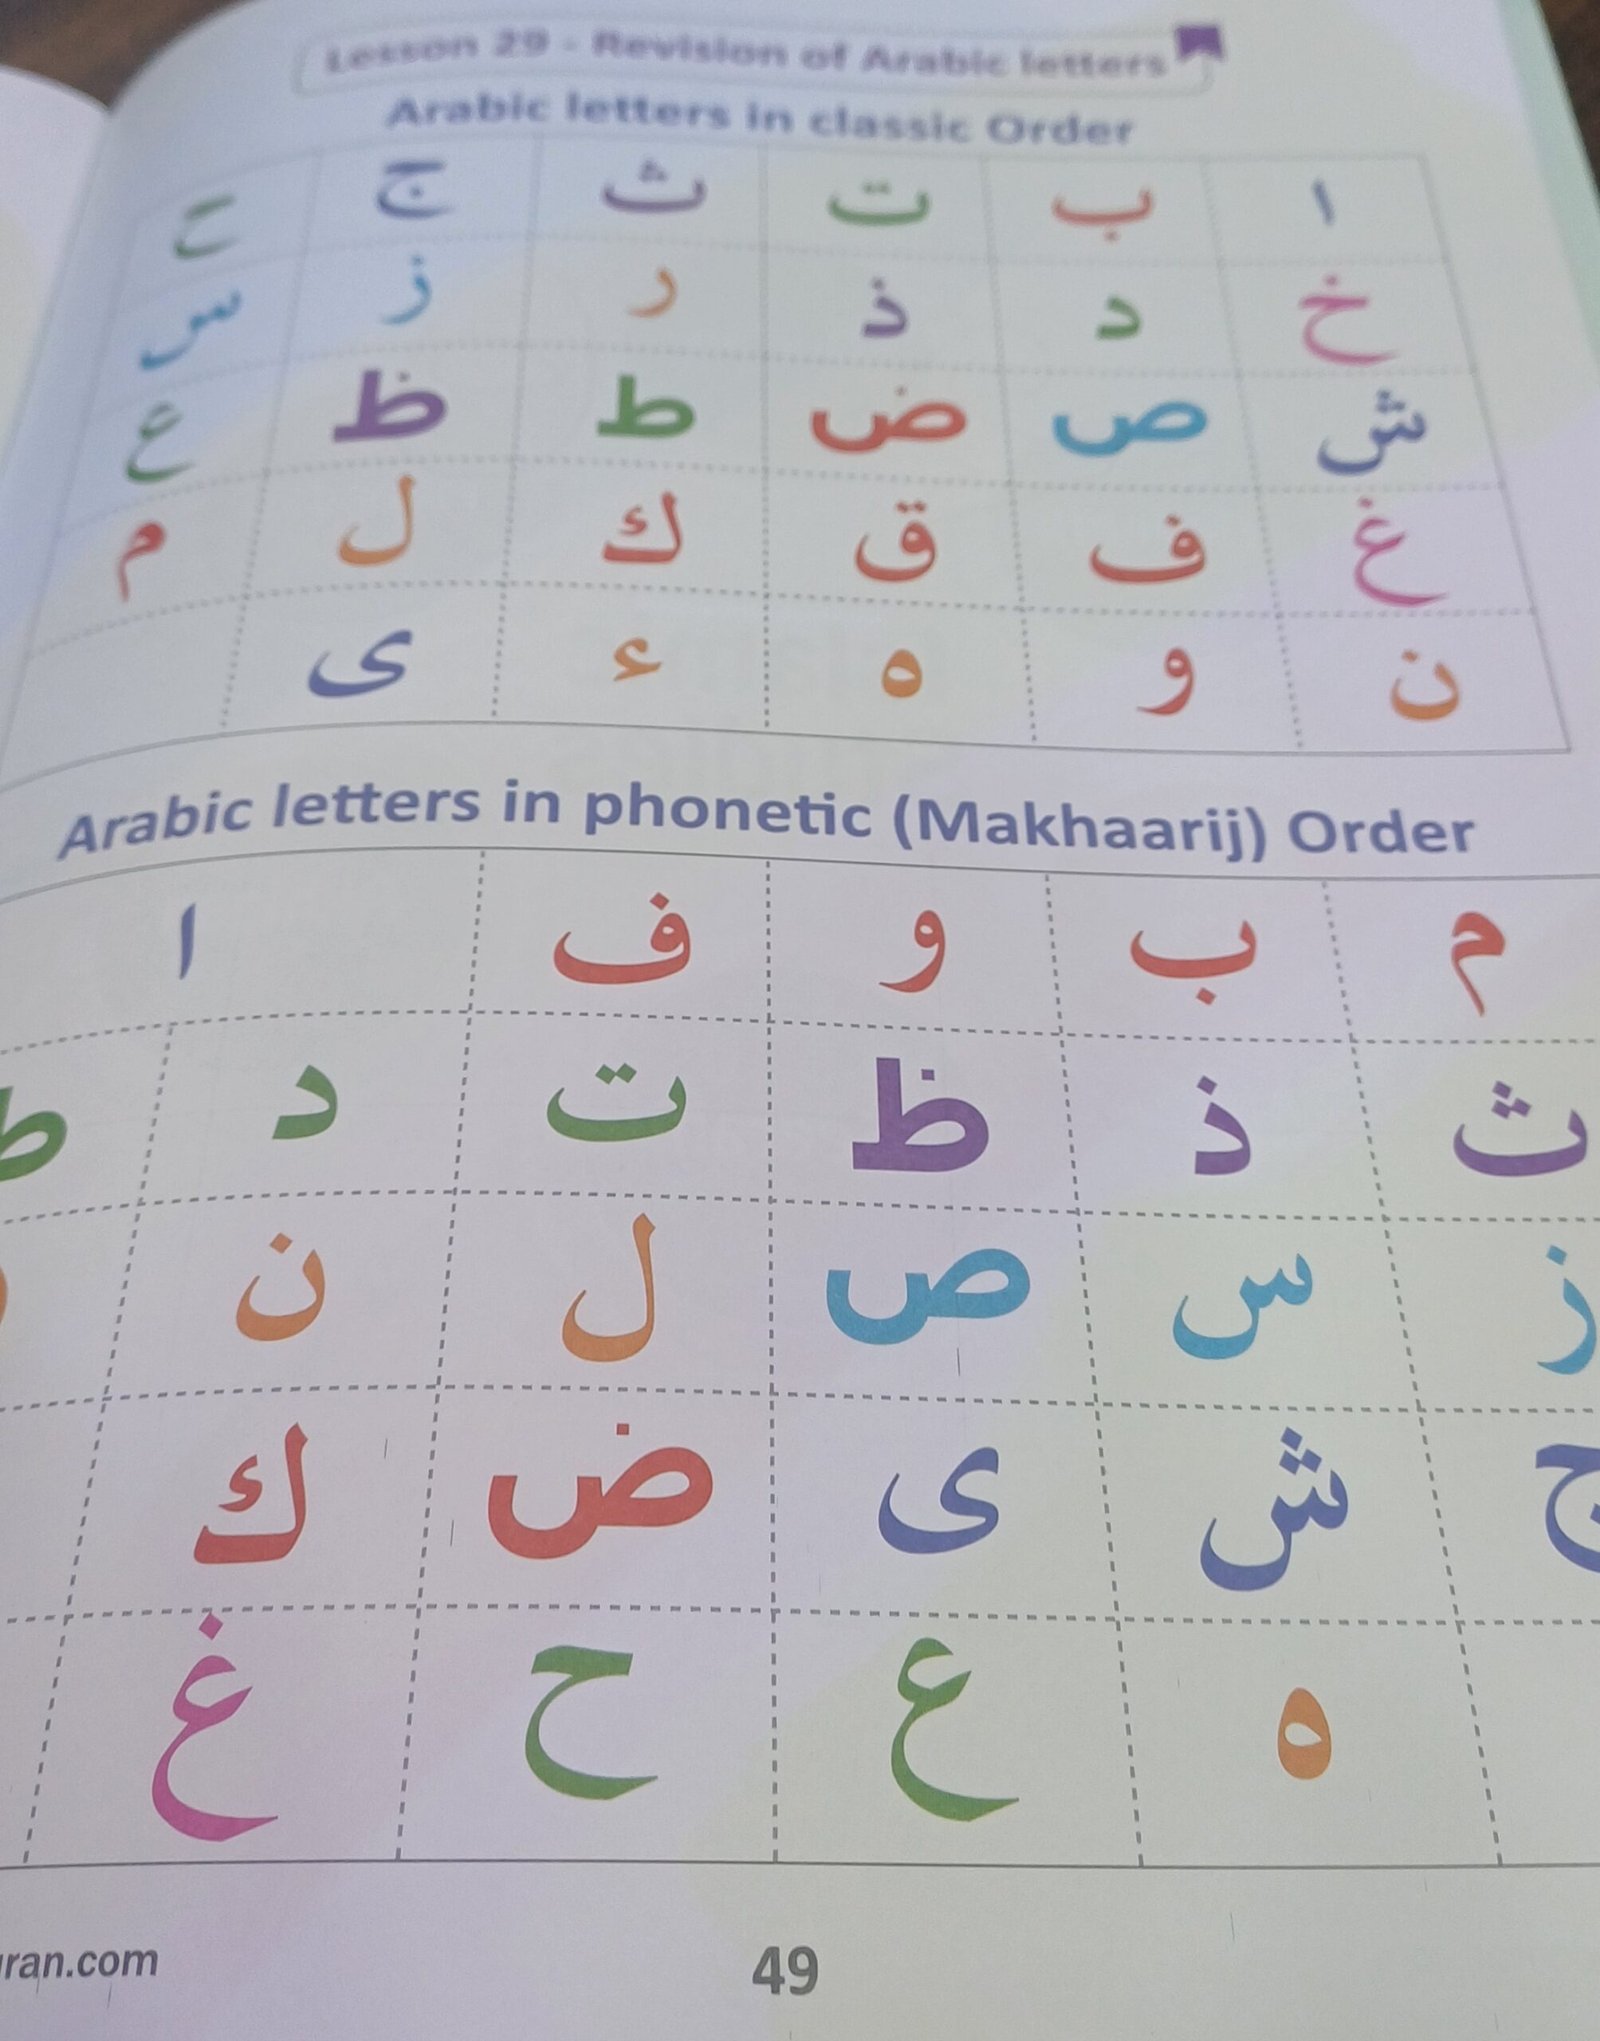 Lesson 29 - Revision of Arabic letters
Arabic letters in classic Order
ا ب ت ث ج ح
خ د ذ ر ز س
ش ص ض ط ظ ع
غ ف ق ك ل م
ن و ه ء ى
Arabic letters in phonetic (Makhaarij) Order
م ب و ف ا
ث ذ ظ ت د ط
ز س ص ل ن
ج ش ى ض ك
ه ع ح غ
49